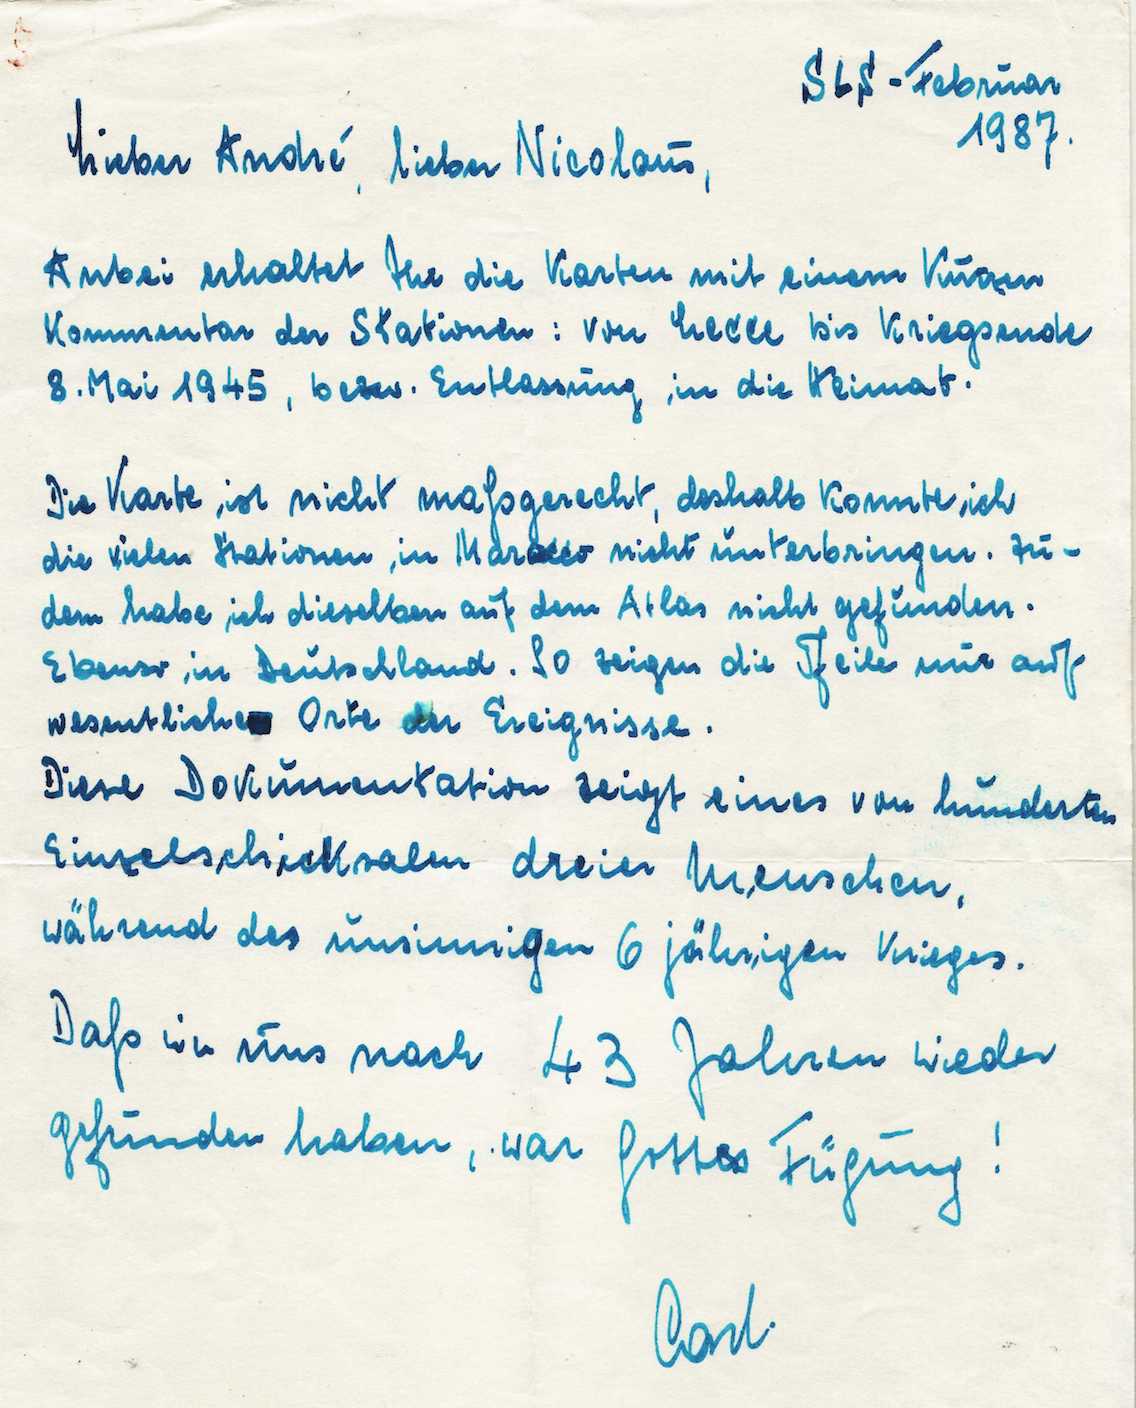 SLS - Februar
1987.
Lieber André, lieber Nicolaus,
Anbei erhaltet Ihr die Karten mit einem Kurzen
Kommentar der Stationen : von Lecce bis Kriegsende
8. Mai 1945, bezw. Entlassung in die Heimat.
Die Karte ist nicht maßgerecht, deshalb konnte ich
die vielen Stationen in Marocco nicht unterbringen. Zu-
dem habe ich dieselben auf dem Atlas nicht gefunden.
Ebenso in Deutschland. So zeigen die Pfeile nur auf
wesentliche Orte der Ereignisse.
Diese Dokumentation zeigt eines von hunderten
Einzelschicksalen dreier Menschen,
während des unsinnigen 6 jährigen Krieges.
Daß wir uns nach 43 Jahren wieder
gefunden haben, war Gottes Fügung !
Carl.